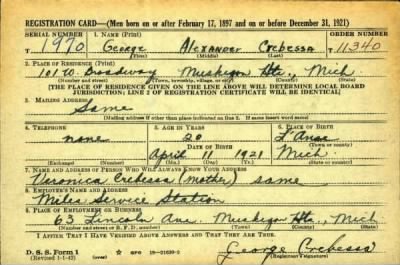 REGISTRATION CARD—(Men born on or after February 17, 1897 and on or before December 31, 1921)
SERIAL NUMBER 1. NAME (Print) ORDER NUMBER
T 1970 George Alexander Crebessa 11340
(First) (Middle) (Last)
2. PLACE OF RESIDENCE (Print)
101 W. Broadway Muskegon Hts., Mich
(Number and street) (Town, township, village, or city) (County) (State)
[THE PLACE OF RESIDENCE GIVEN ON THE LINE ABOVE WILL DETERMINE LOCAL BOARD
JURISDICTION; LINE 2 OF REGISTRATION CERTIFICATE WILL BE IDENTICAL]
3. MAILING ADDRESS
Same
[Mailing address if other than place indicated on line 2. If same insert word same]
4. TELEPHONE 5. AGE IN YEARS 6. PLACE OF BIRTH
none 20 L'Anse
DATE OF BIRTH (Town or county)
April 11 1921 Mich
(Exchange) (Number) (Mo.) (Day) (Yr.) (State or country)
7. NAME AND ADDRESS OF PERSON WHO WILL ALWAYS KNOW YOUR ADDRESS
Veronica Crebessa (mother) same
8. EMPLOYER'S NAME AND ADDRESS
Miles Service Station
9. PLACE OF EMPLOYMENT OR BUSINESS
63 Lincoln Ave. Muskegon Hts., Mich
(Number and street or R. F. D. number) (Town) (County) (State)
I AFFIRM THAT I HAVE VERIFIED ABOVE ANSWERS AND THAT THEY ARE TRUE.
D. S. S. Form 1
(Revised 1-1-42) GPO 16—21630-2
George Crebessa
(Registrant's signature)